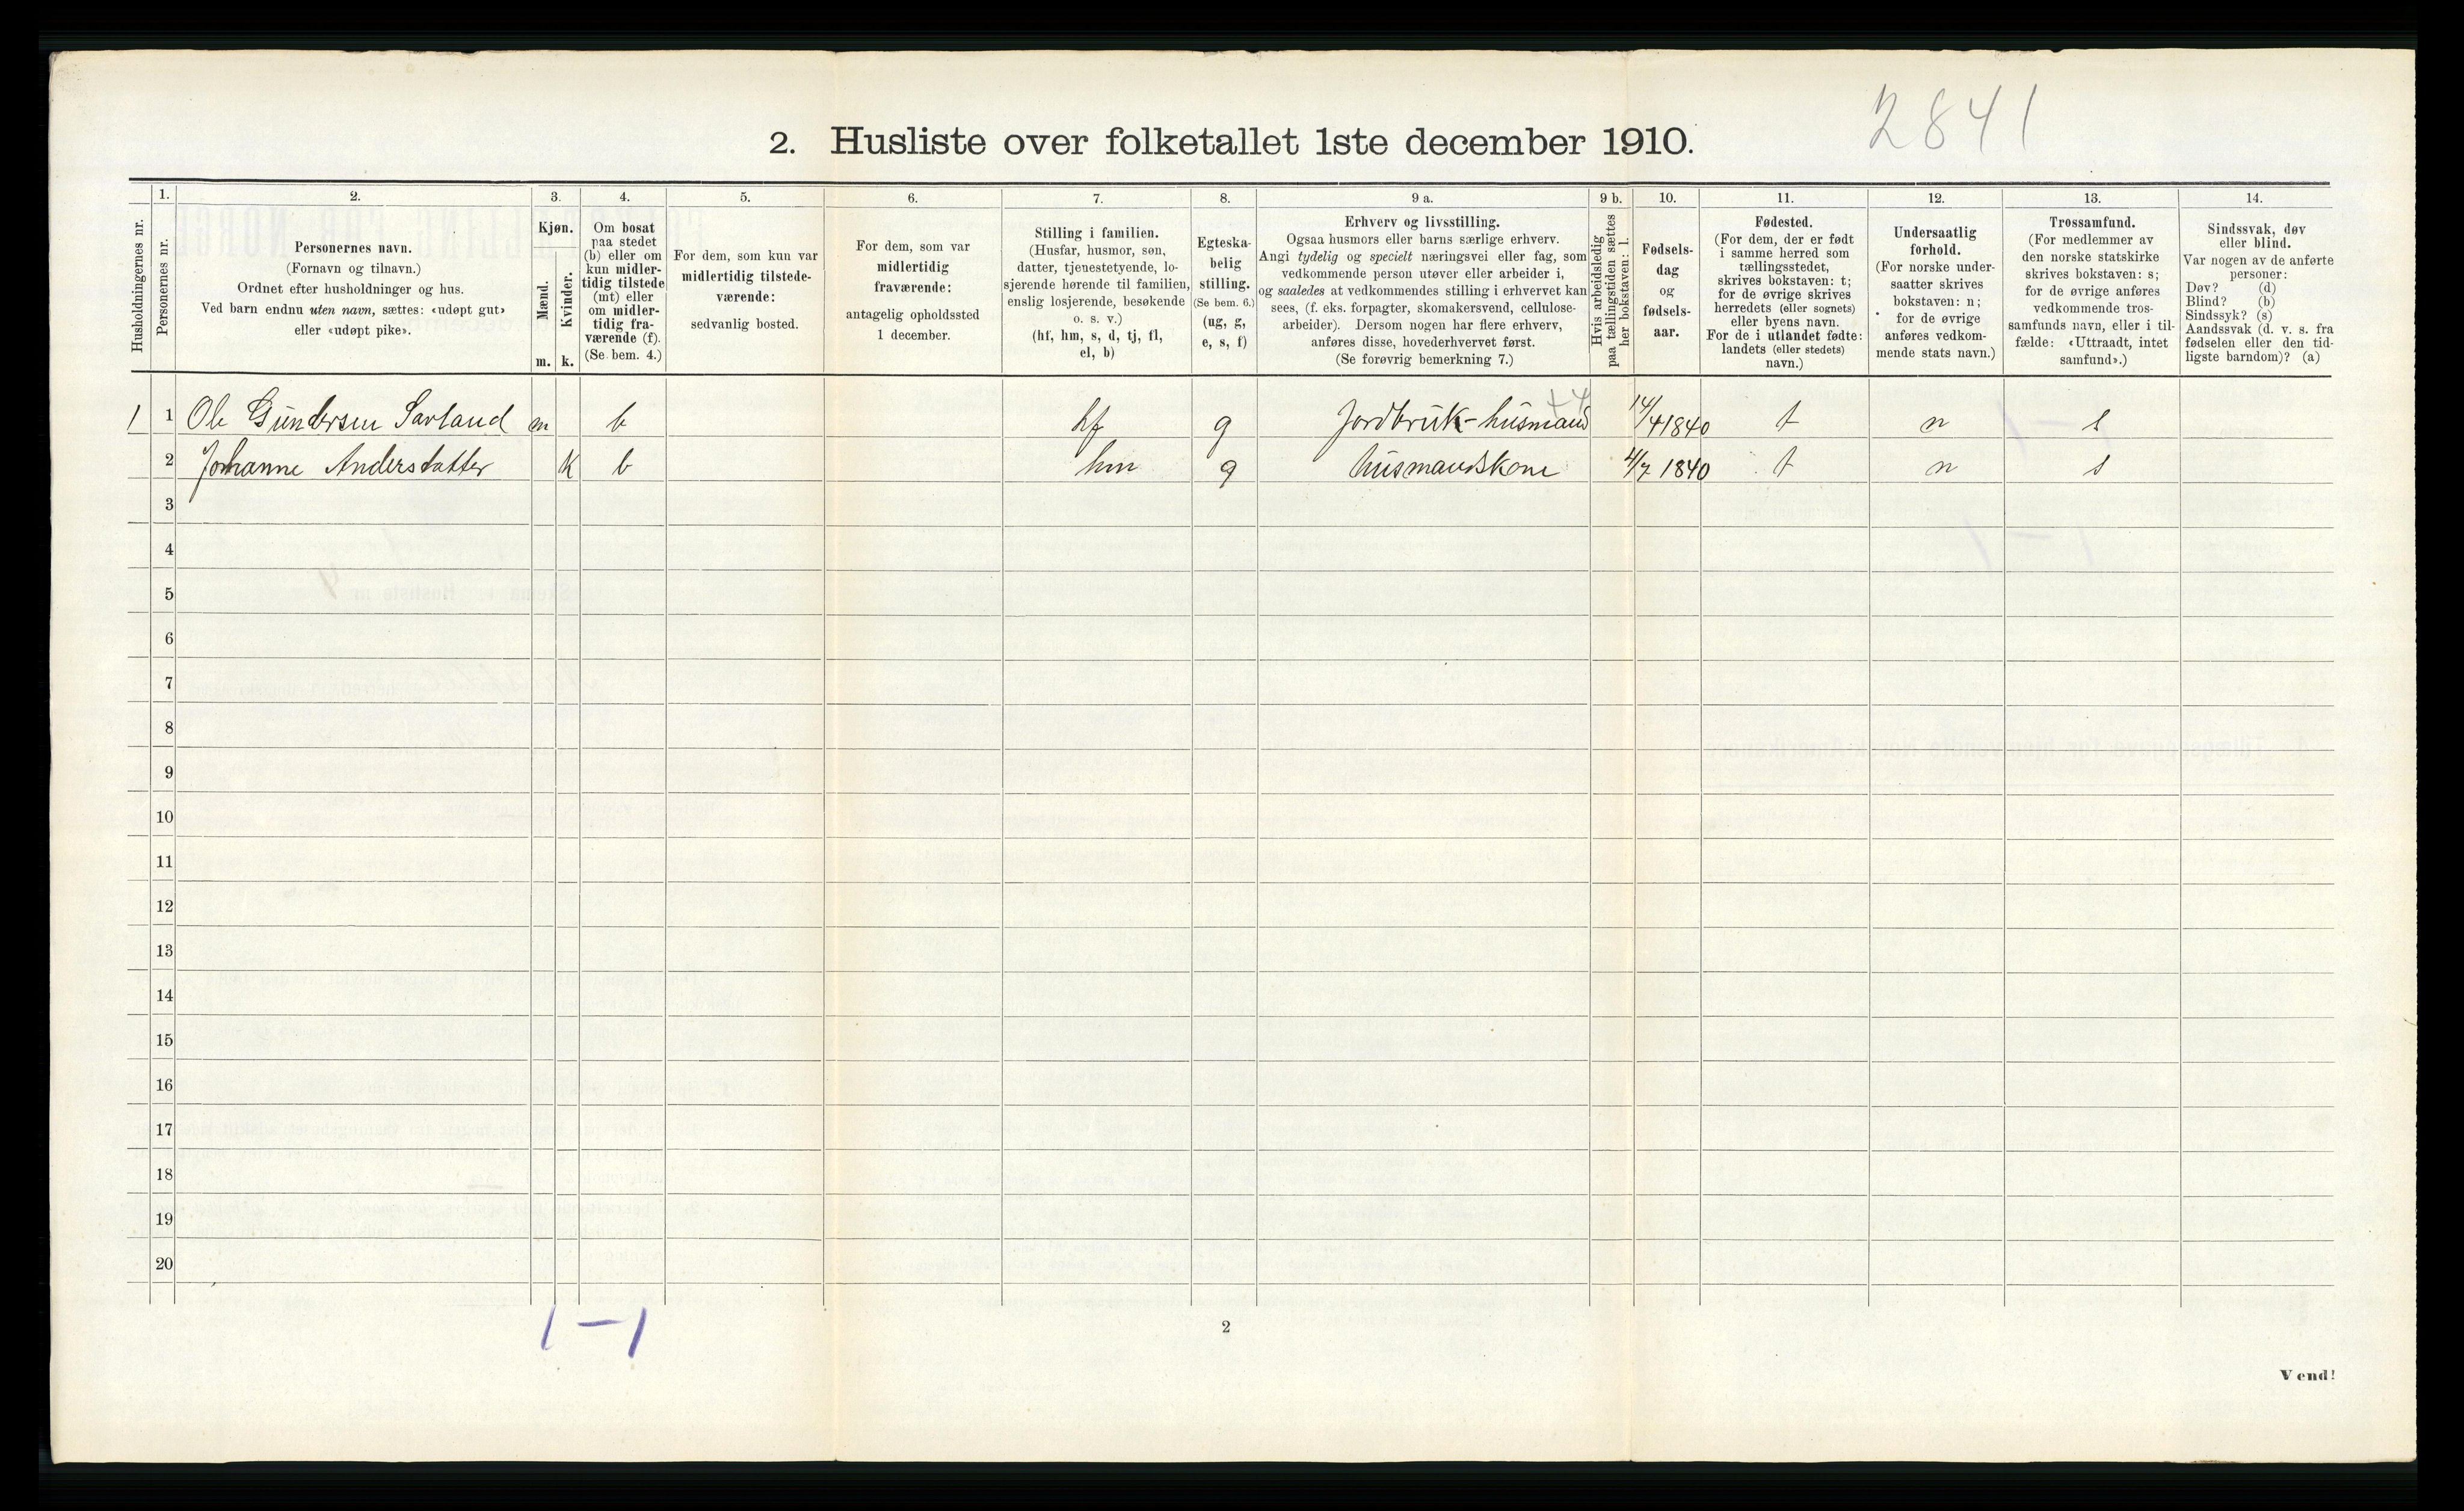 2841
2. Husliste over folketallet 1ste december 1910.
Husholdningernes nr.
1.
Personernes nr.
2.
Personernes navn.
(Fornavn og tilnavn.)
Ordnet efter husholdninger og hus.
Ved barn endnu uten navn, sættes: «udøpt gut»
eller «udøpt pike».
3.
Kjøn.
Mænd.
Kvinder.
m. k.
4.
Om bosat
paa stedet
(b) eller om
kun midler-
tidig tilstede
(mt) eller
om midler-
tidig fra-
værende (f).
(Se bem. 4.)
5.
For dem, som kun var
midlertidig tilstede-
værende:
sedvanlig bosted.
6.
For dem, som var
midlertidig
fraværende:
antagelig opholdssted
1 december.
7.
Stilling i familien.
(Husfar, husmor, søn,
datter, tjenestetyende, lo-
sjerende hørende til familien,
enslig losjerende, besøkende
o. s. v.)
(hf, hm, s, d, tj, fl,
el, b)
8.
Egteska-
belig
stilling.
(Se bem. 6.)
(ug, g,
e, s, f)
9 a.
Erhverv og livsstilling.
Ogsaa husmors eller barns særlige erhverv.
Angi tydelig og specielt næringsvei eller fag, som
vedkommende person utøver eller arbeider i,
og saaledes at vedkommendes stilling i erhvervet kan
sees, (f. eks. forpagter, skomakersvend, cellulose-
arbeider). Dersom nogen har flere erhverv,
anføres disse, hovederhvervet først.
(Se forøvrig bemerkning 7.)
9 b.
Hvis arbeidsledig
paa tællingstiden sættes
her bokstaven: l.
10.
Fødsels-
dag
og
fødsels-
aar.
11.
Fødested.
(For dem, der er født
i samme herred som
tællingsstedet,
skrives bokstaven: t;
for de øvrige skrives
herredets (eller sognets)
eller byens navn.
For de i utlandet fødte:
landets (eller stedets)
navn.)
12.
Undersaatlig
forhold.
(For norske under-
saatter skrives
bokstaven: n;
for de øvrige
anføres vedkom-
mende stats navn.)
13.
Trossamfund.
(For medlemmer av
den norske statskirke
skrives bokstaven: s;
for de øvrige anføres
vedkommende tros-
samfunds navn, eller i til-
fælde: «Uttraadt, intet
samfund».)
14.
Sindssvak, døv
eller blind.
Var nogen av de anførte
personer:
Døv? (d)
Blind? (b)
Sindssyk? (s)
Aandssvak (d. v. s. fra
fødselen eller den tid-
ligste barndom)? (a)
1 1 Ole Gundersen Savland m b hf g Jordbruk-husmand 14/4 1840 t n s
2 Johanne Andersdatter K b hm g husmandskone 4/7 1840 t n s
3
4
5
6
7
8
9
10
11
12
13
14
15
16
17
18
19
20
1-1
2
Vend!